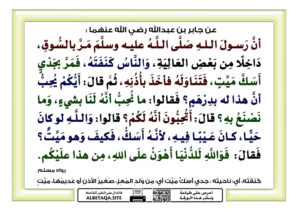 عن جابر بن عبدالله رضي الله عنهما :
أَنَّ رَسولَ اللهِ صَلَّى اللَّهُ عليه وسلَّمَ مَرَّ بالسُّوقِ،
دَاخِلًا مِن بَعْضِ العالِيَةِ، وَالنَّاسُ كَنَفَتَهُ، فَمَرَّ بجَدْيٍ
أَسَكَّ مَيِّتٍ، فَتَنَاوَلَهُ فأخَذَ بأُذُنِهِ، ثُمَّ قالَ: أَيُّكُمْ يُحِبُّ
أنَّ هذا له بدِرْهَمٍ؟ فَقالوا: ما نُحِبُّ أنَّهُ لَنَا بشيءٍ، وَما
نَصْنَعُ بهِ؟ قالَ: أَتُحِبُّونَ أنَّهُ لَكُمْ؟ قالوا: وَاللَّهِ لو كانَ
حَيًّا، كانَ عَيْبًا فِيهِ، لأنَّهُ أَسَكُّ، فَكيفَ وَهو مَيِّتٌ؟
فَقالَ: فَوَاللَّهِ لَلدُّنْيَا أَهْوَنُ علَى اللهِ، مِن هذا علَيْكُم.
رواه مسلم
كنفته، أي: ناحيته. جدي أسكّ ميت أي: من ولد المعز، صغير الأذن أو عديمها، ميت
ALBETAQA.SITE
احرص على طباعة
ونشر هذه الورقة